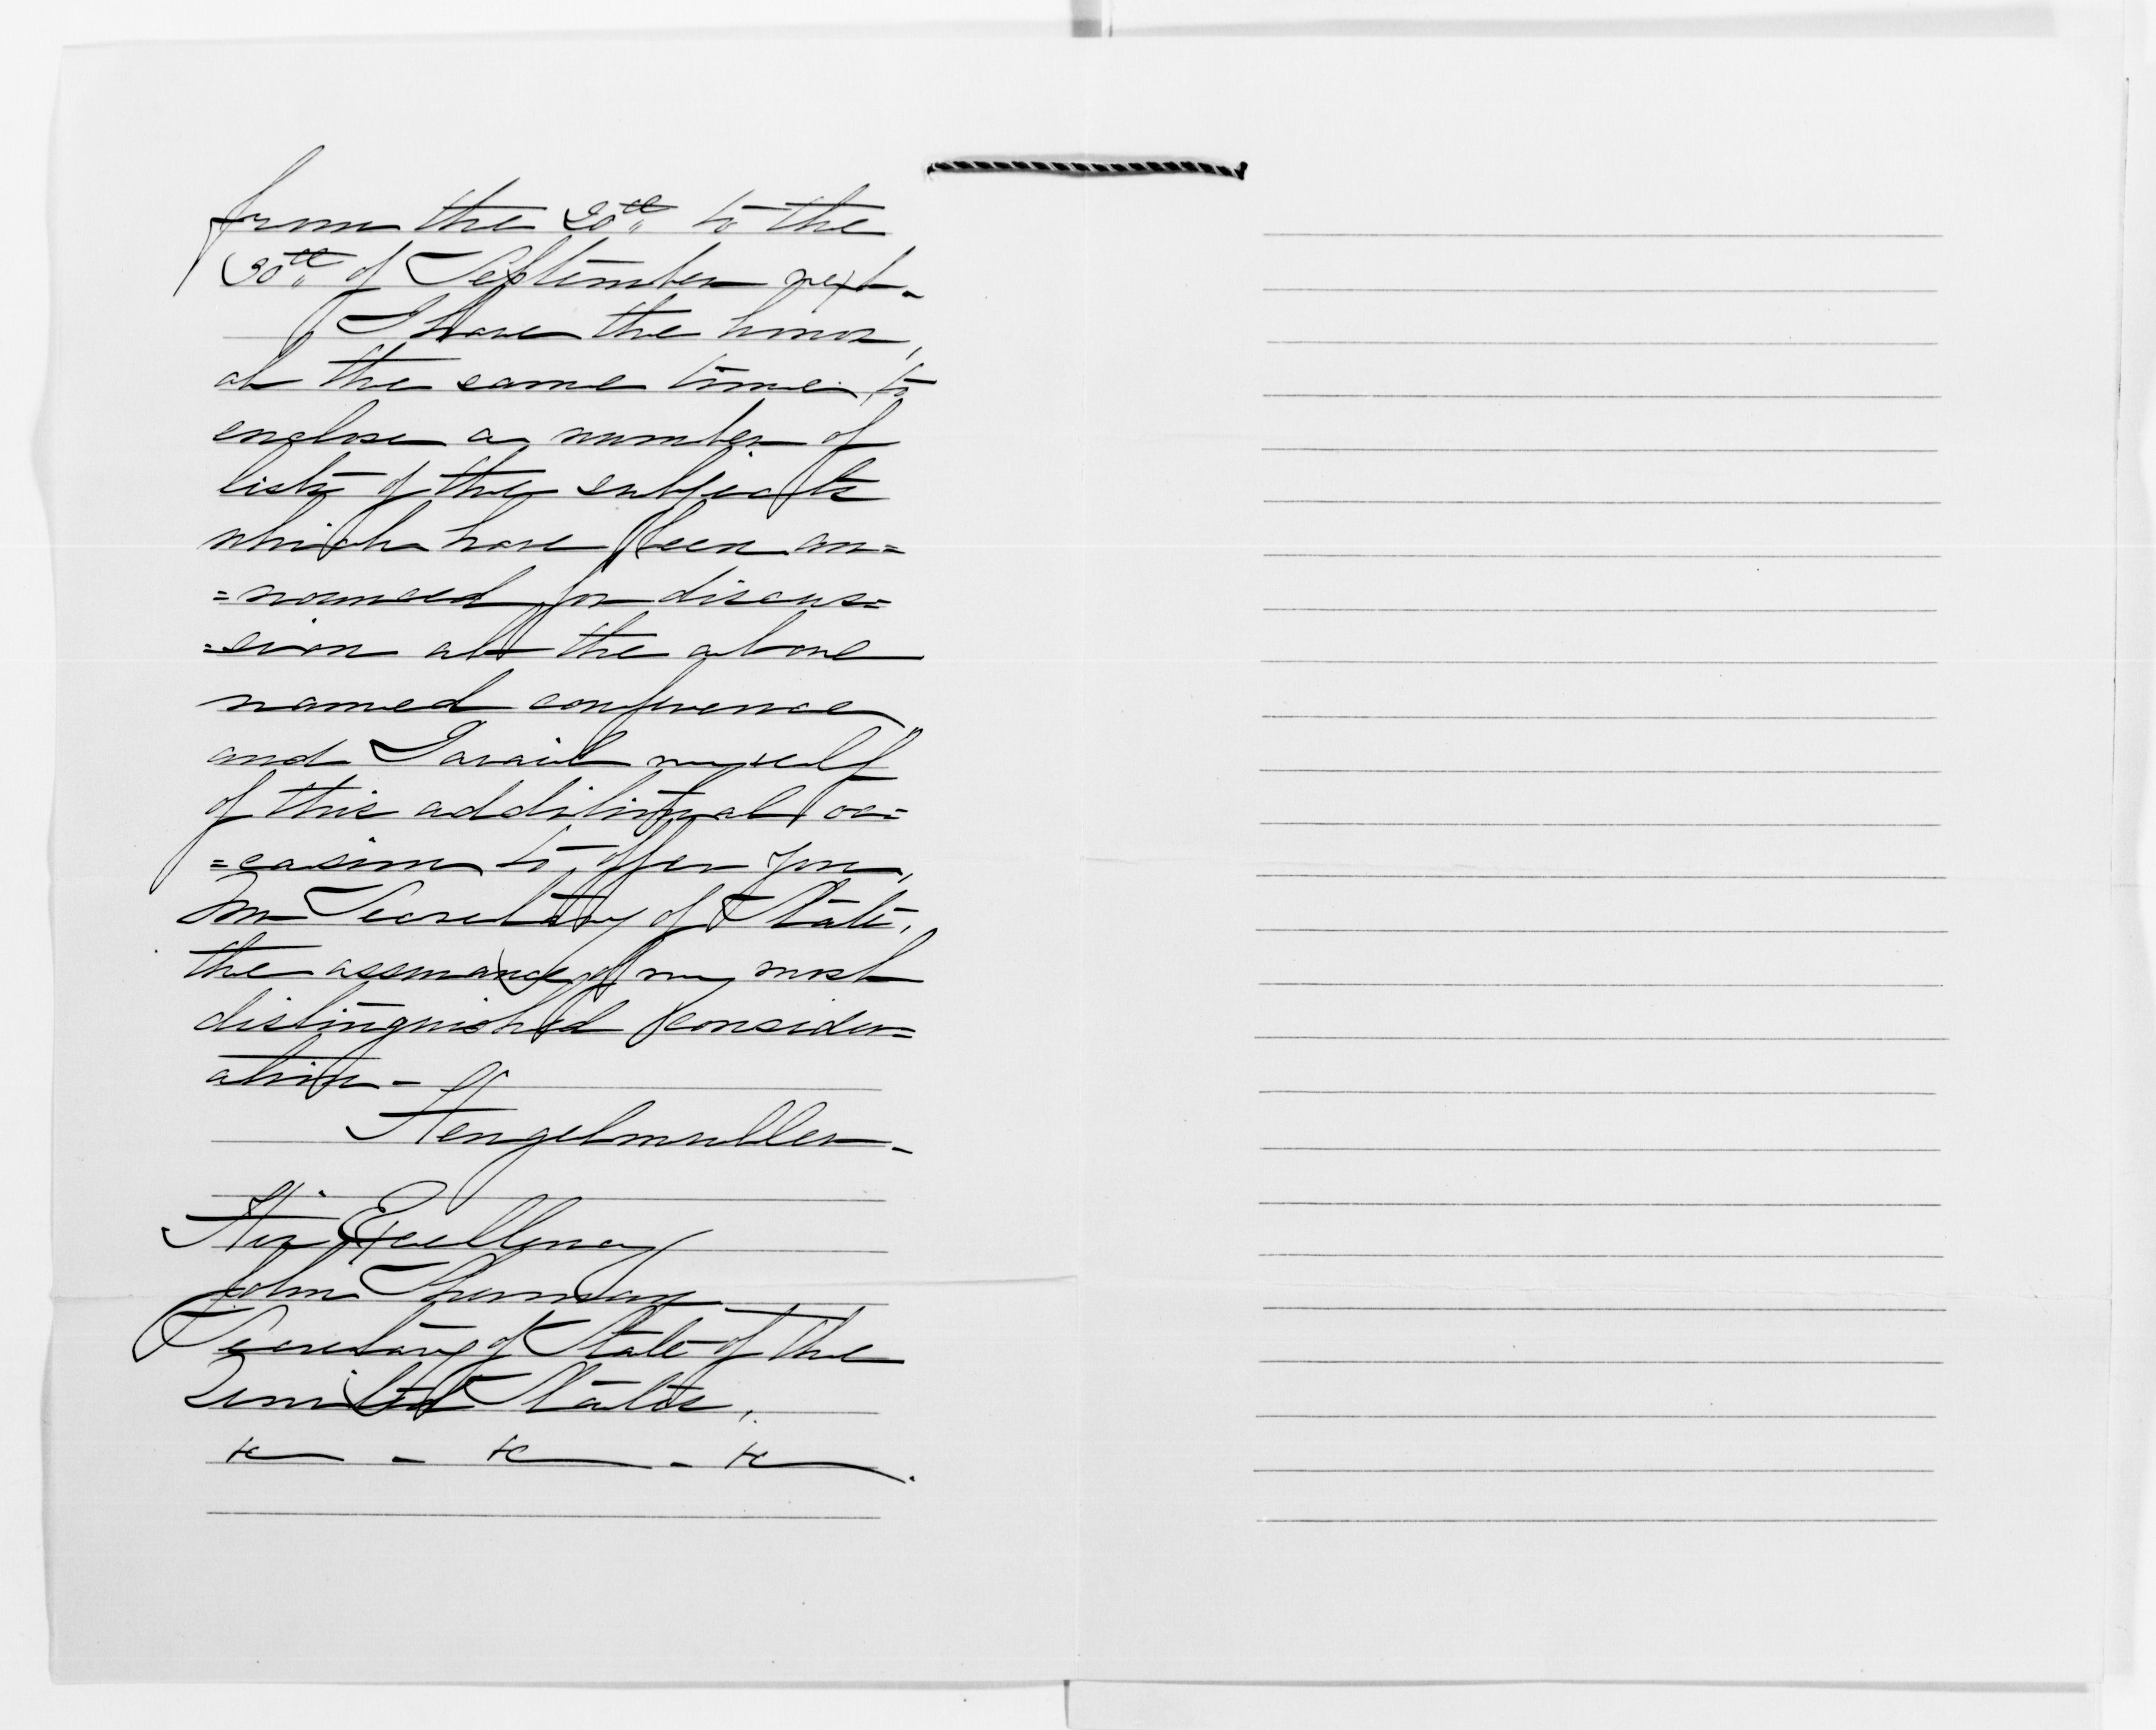 from the 20th to the
30th of September next.
I have the honor,
at the same time, to
enclose a number of
lists of the subjects
which have been an=
=nounced for discus=
=sion at the above
named conference,
and I avail myself
of this additional oc=
=casion to offer you,
Mr Secretary of State,
the assurance of my most
distinguished consider=
ation -
Hengelmuller -
His Excellency
John Sherman
Secretary of State of the
United States.